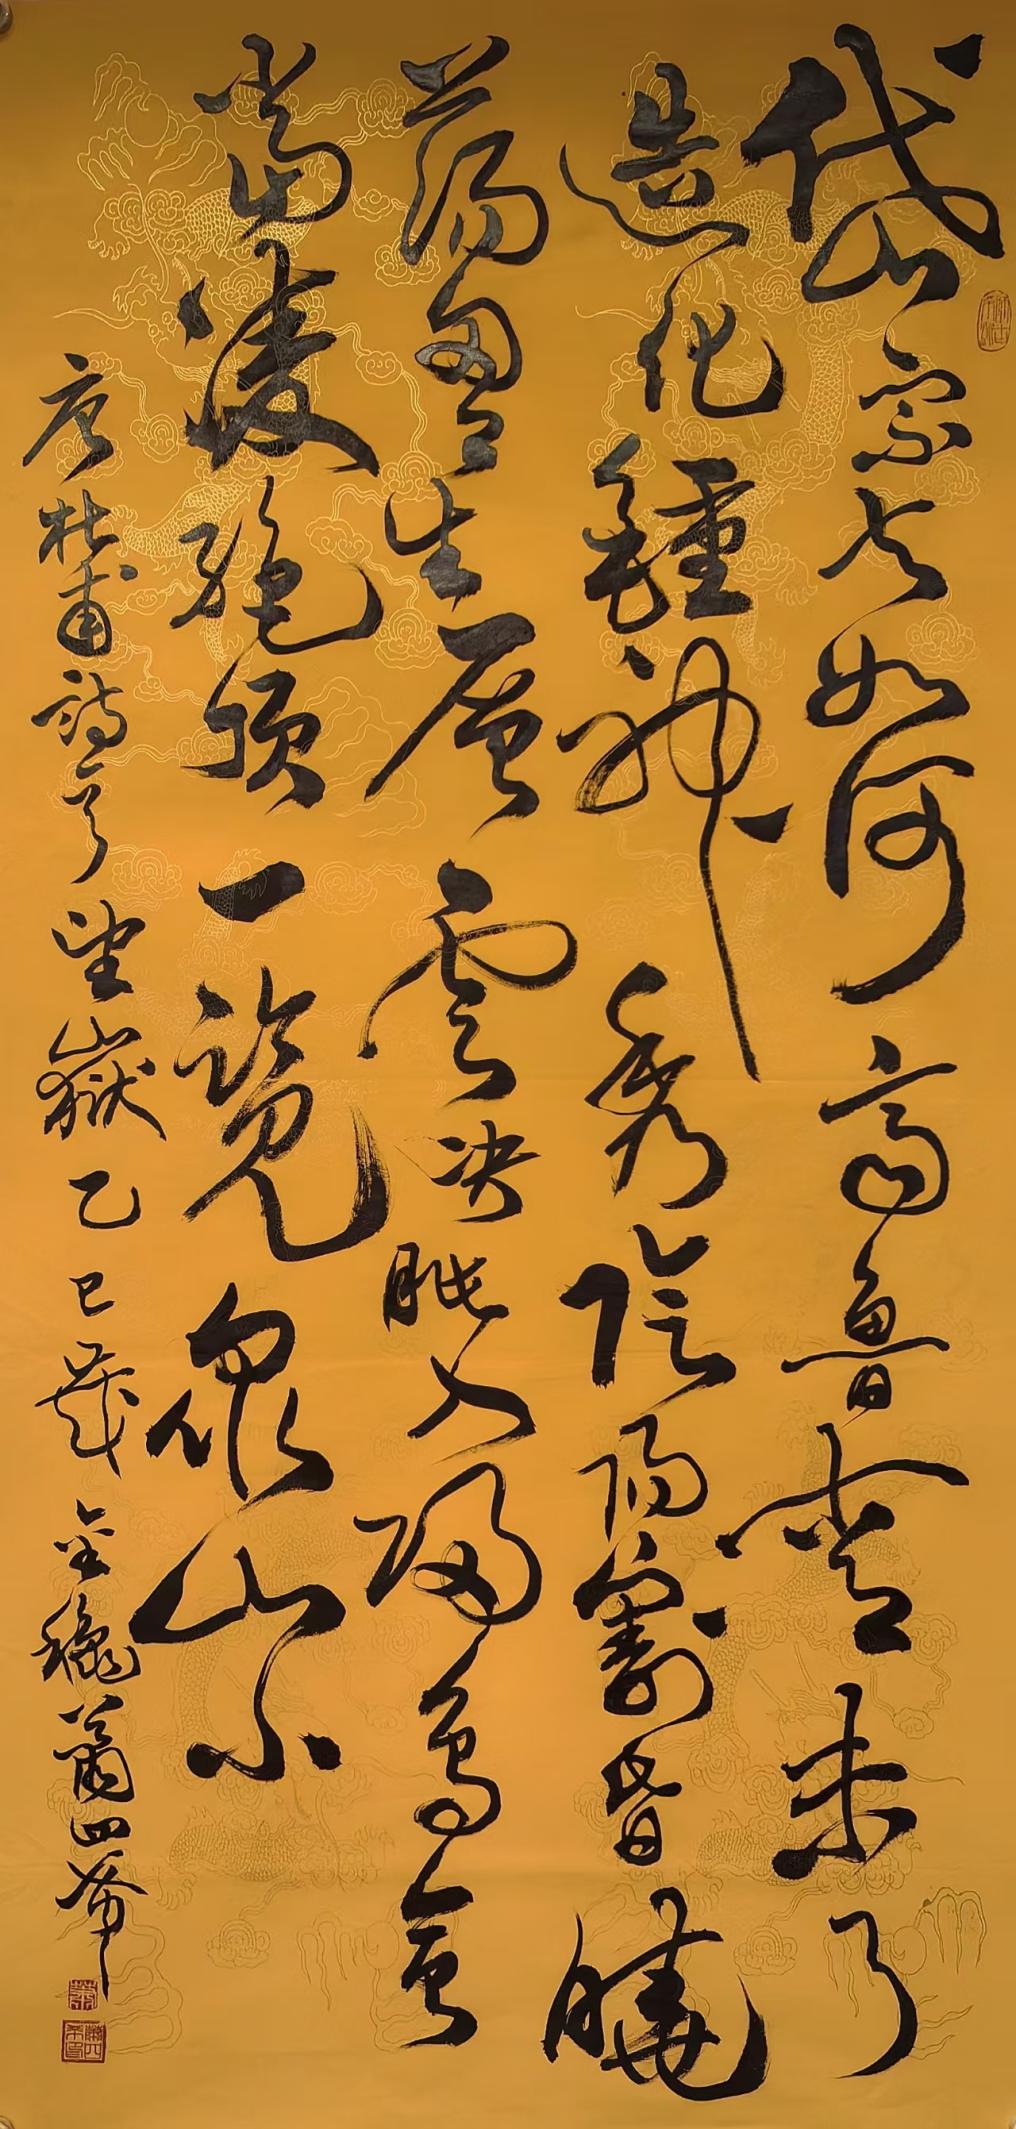 岱宗夫如何齊魯青未了
造化鍾神秀陰陽割昏曉
蕩胸生層雲决眥入歸鳥會
當凌絕頂一覽眾山小
唐杜甫詩一首望嶽乙巳歲金龝蕭四